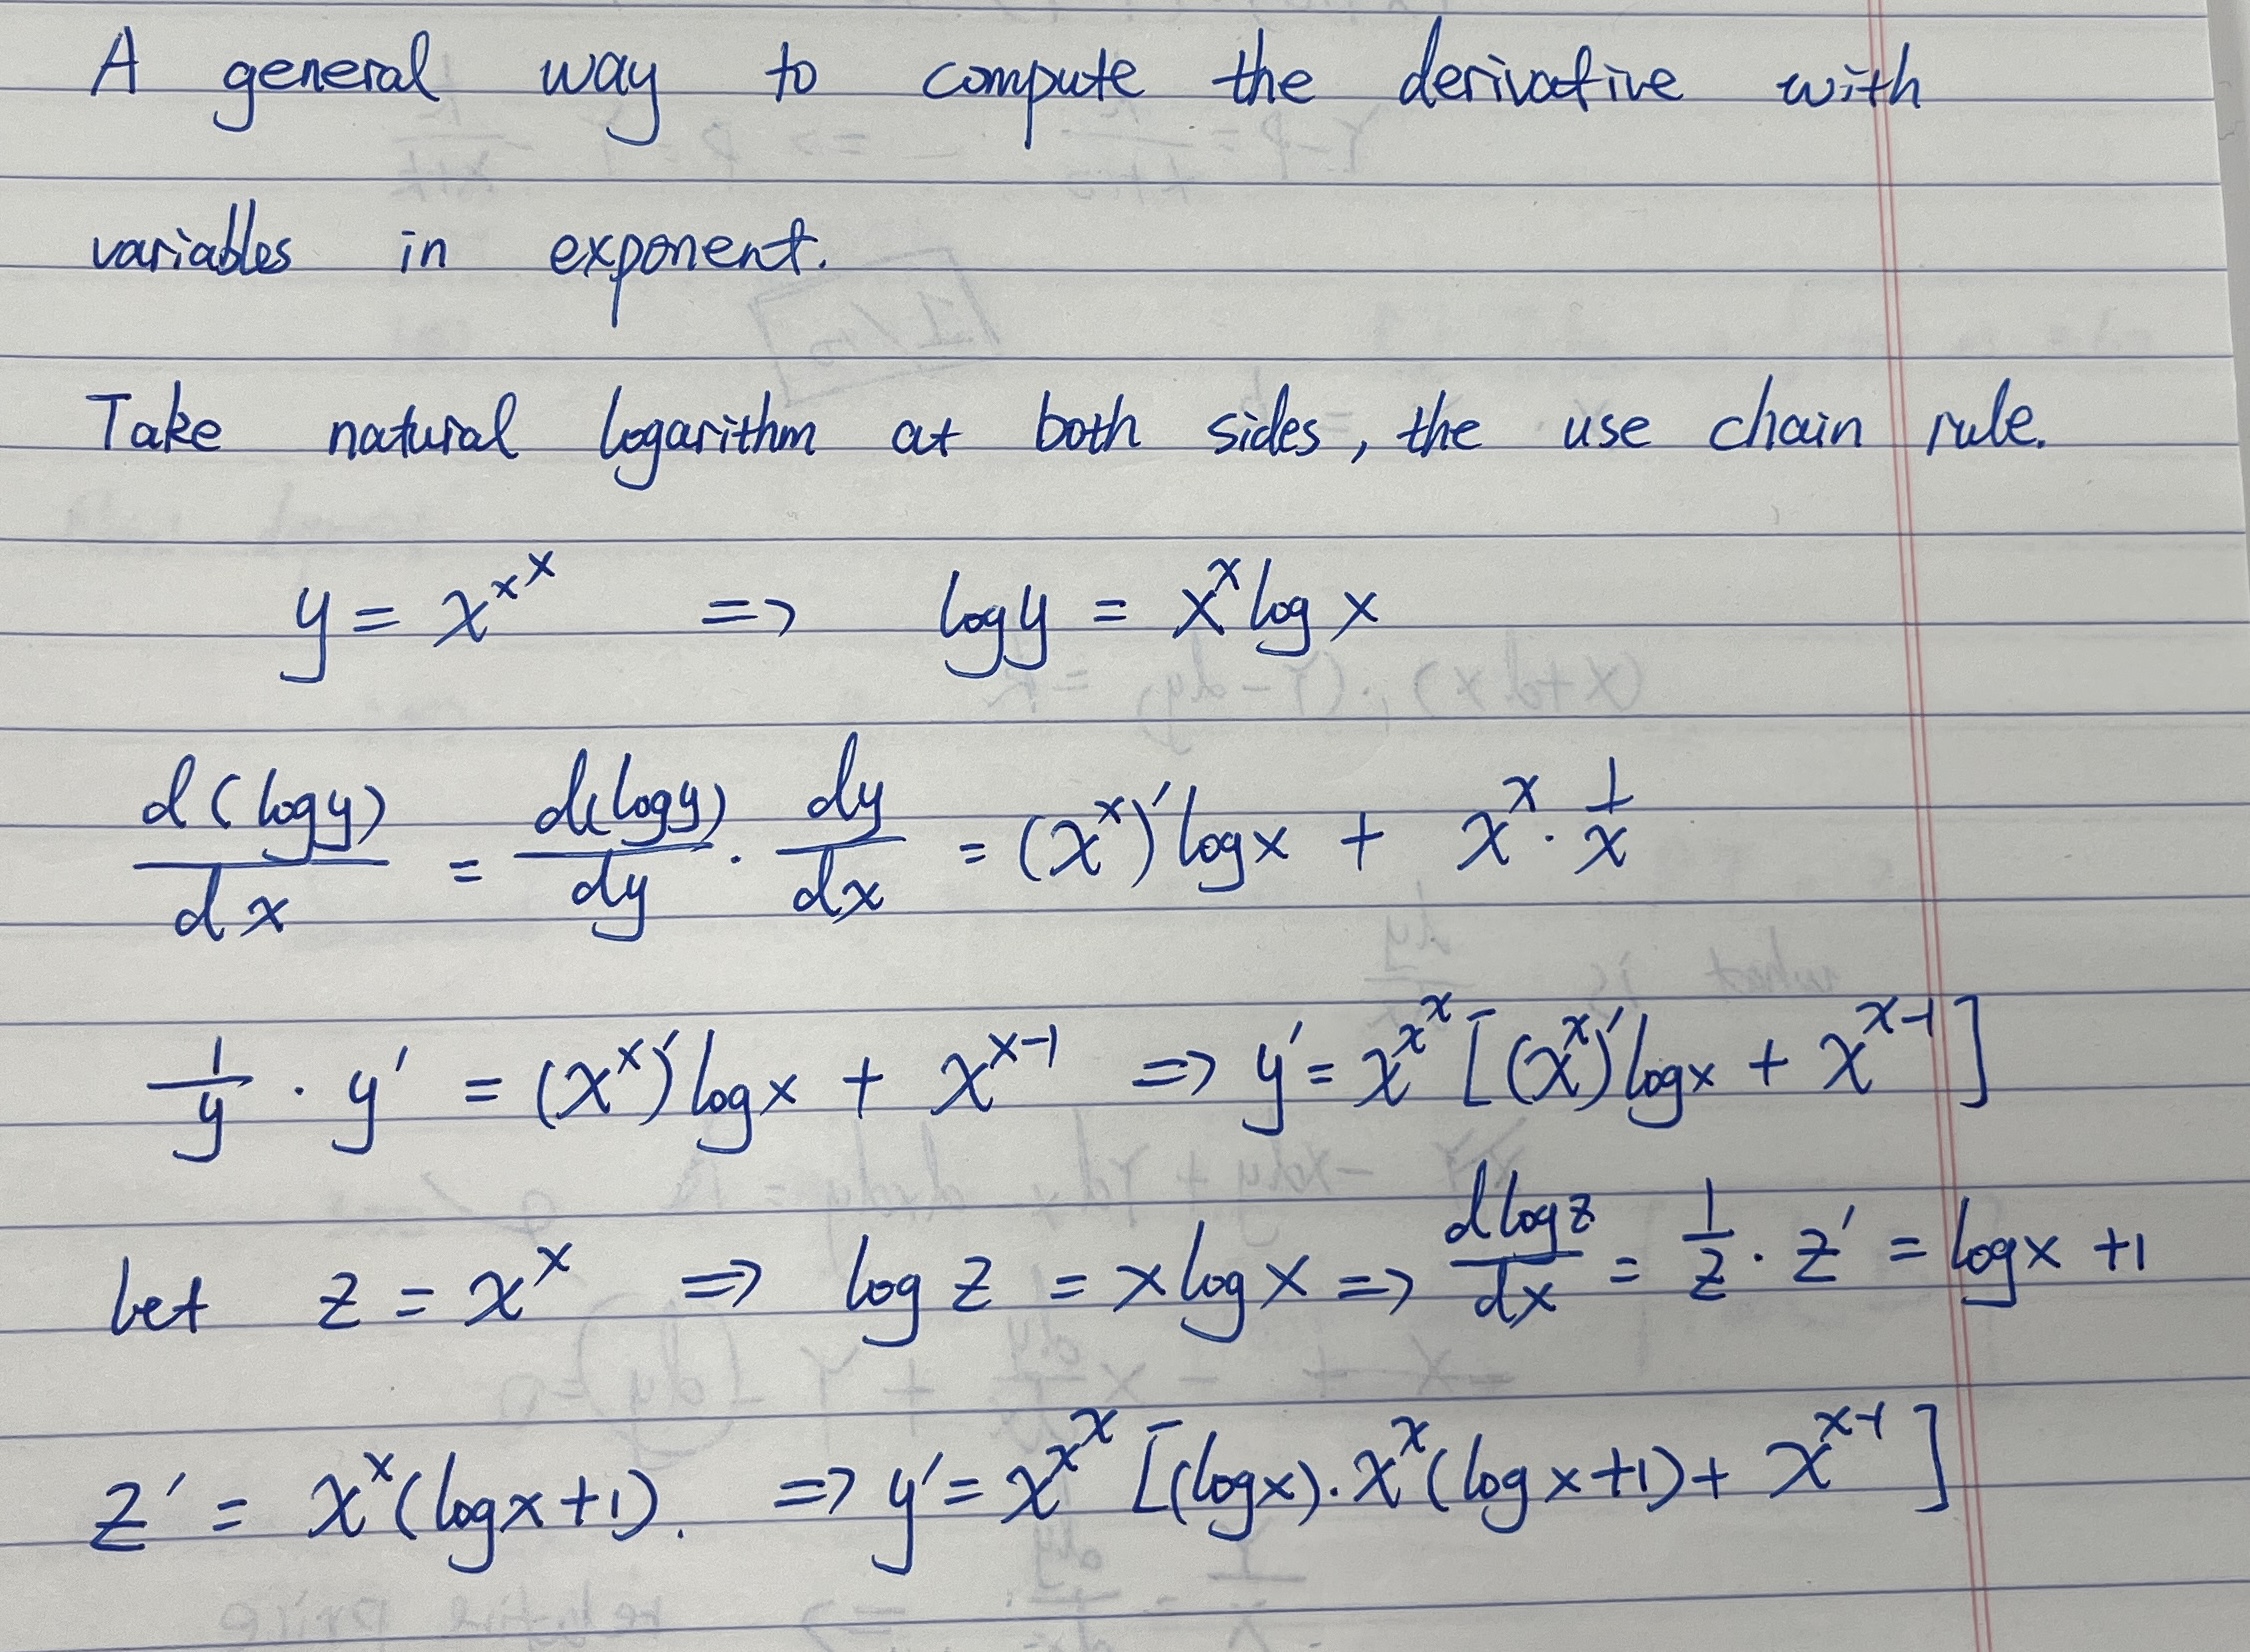 A general way to compute the derivative with
variables in exponent.
Take natural logarithm at both sides, the use chain rule.
y = x^{x^x} => log y = x^x log x
d(log y)/dx = d(log y)/dy · dy/dx = (x^x)' log x + x^x · 1/x
1/y · y' = (x^x)' log x + x^{x-1} => y' = x^{x^x} [(x^x)' log x + x^{x-1}]
let z = x^x => log z = x log x => d log z/dx = 1/z · z' = log x + 1
z' = x^x (log x + 1). => y' = x^{x^x} [(log x) · x^x (log x + 1) + x^{x-1}]